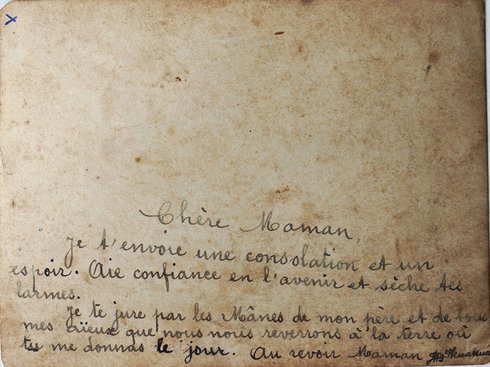 Chère Maman,
Je t'envoie une consolation et un
espoir. Aie confiance en l'avenir et sèche tes
larmes.
Je te jure par les Mânes de mon père et de tous
mes aïeux que nous nous reverrons à la terre où
tu me donnas le jour. Au revoir Maman